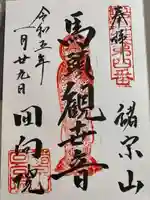 奉拝
諸宗山
馬頭観世音
令和五年
月廿九日
回向院